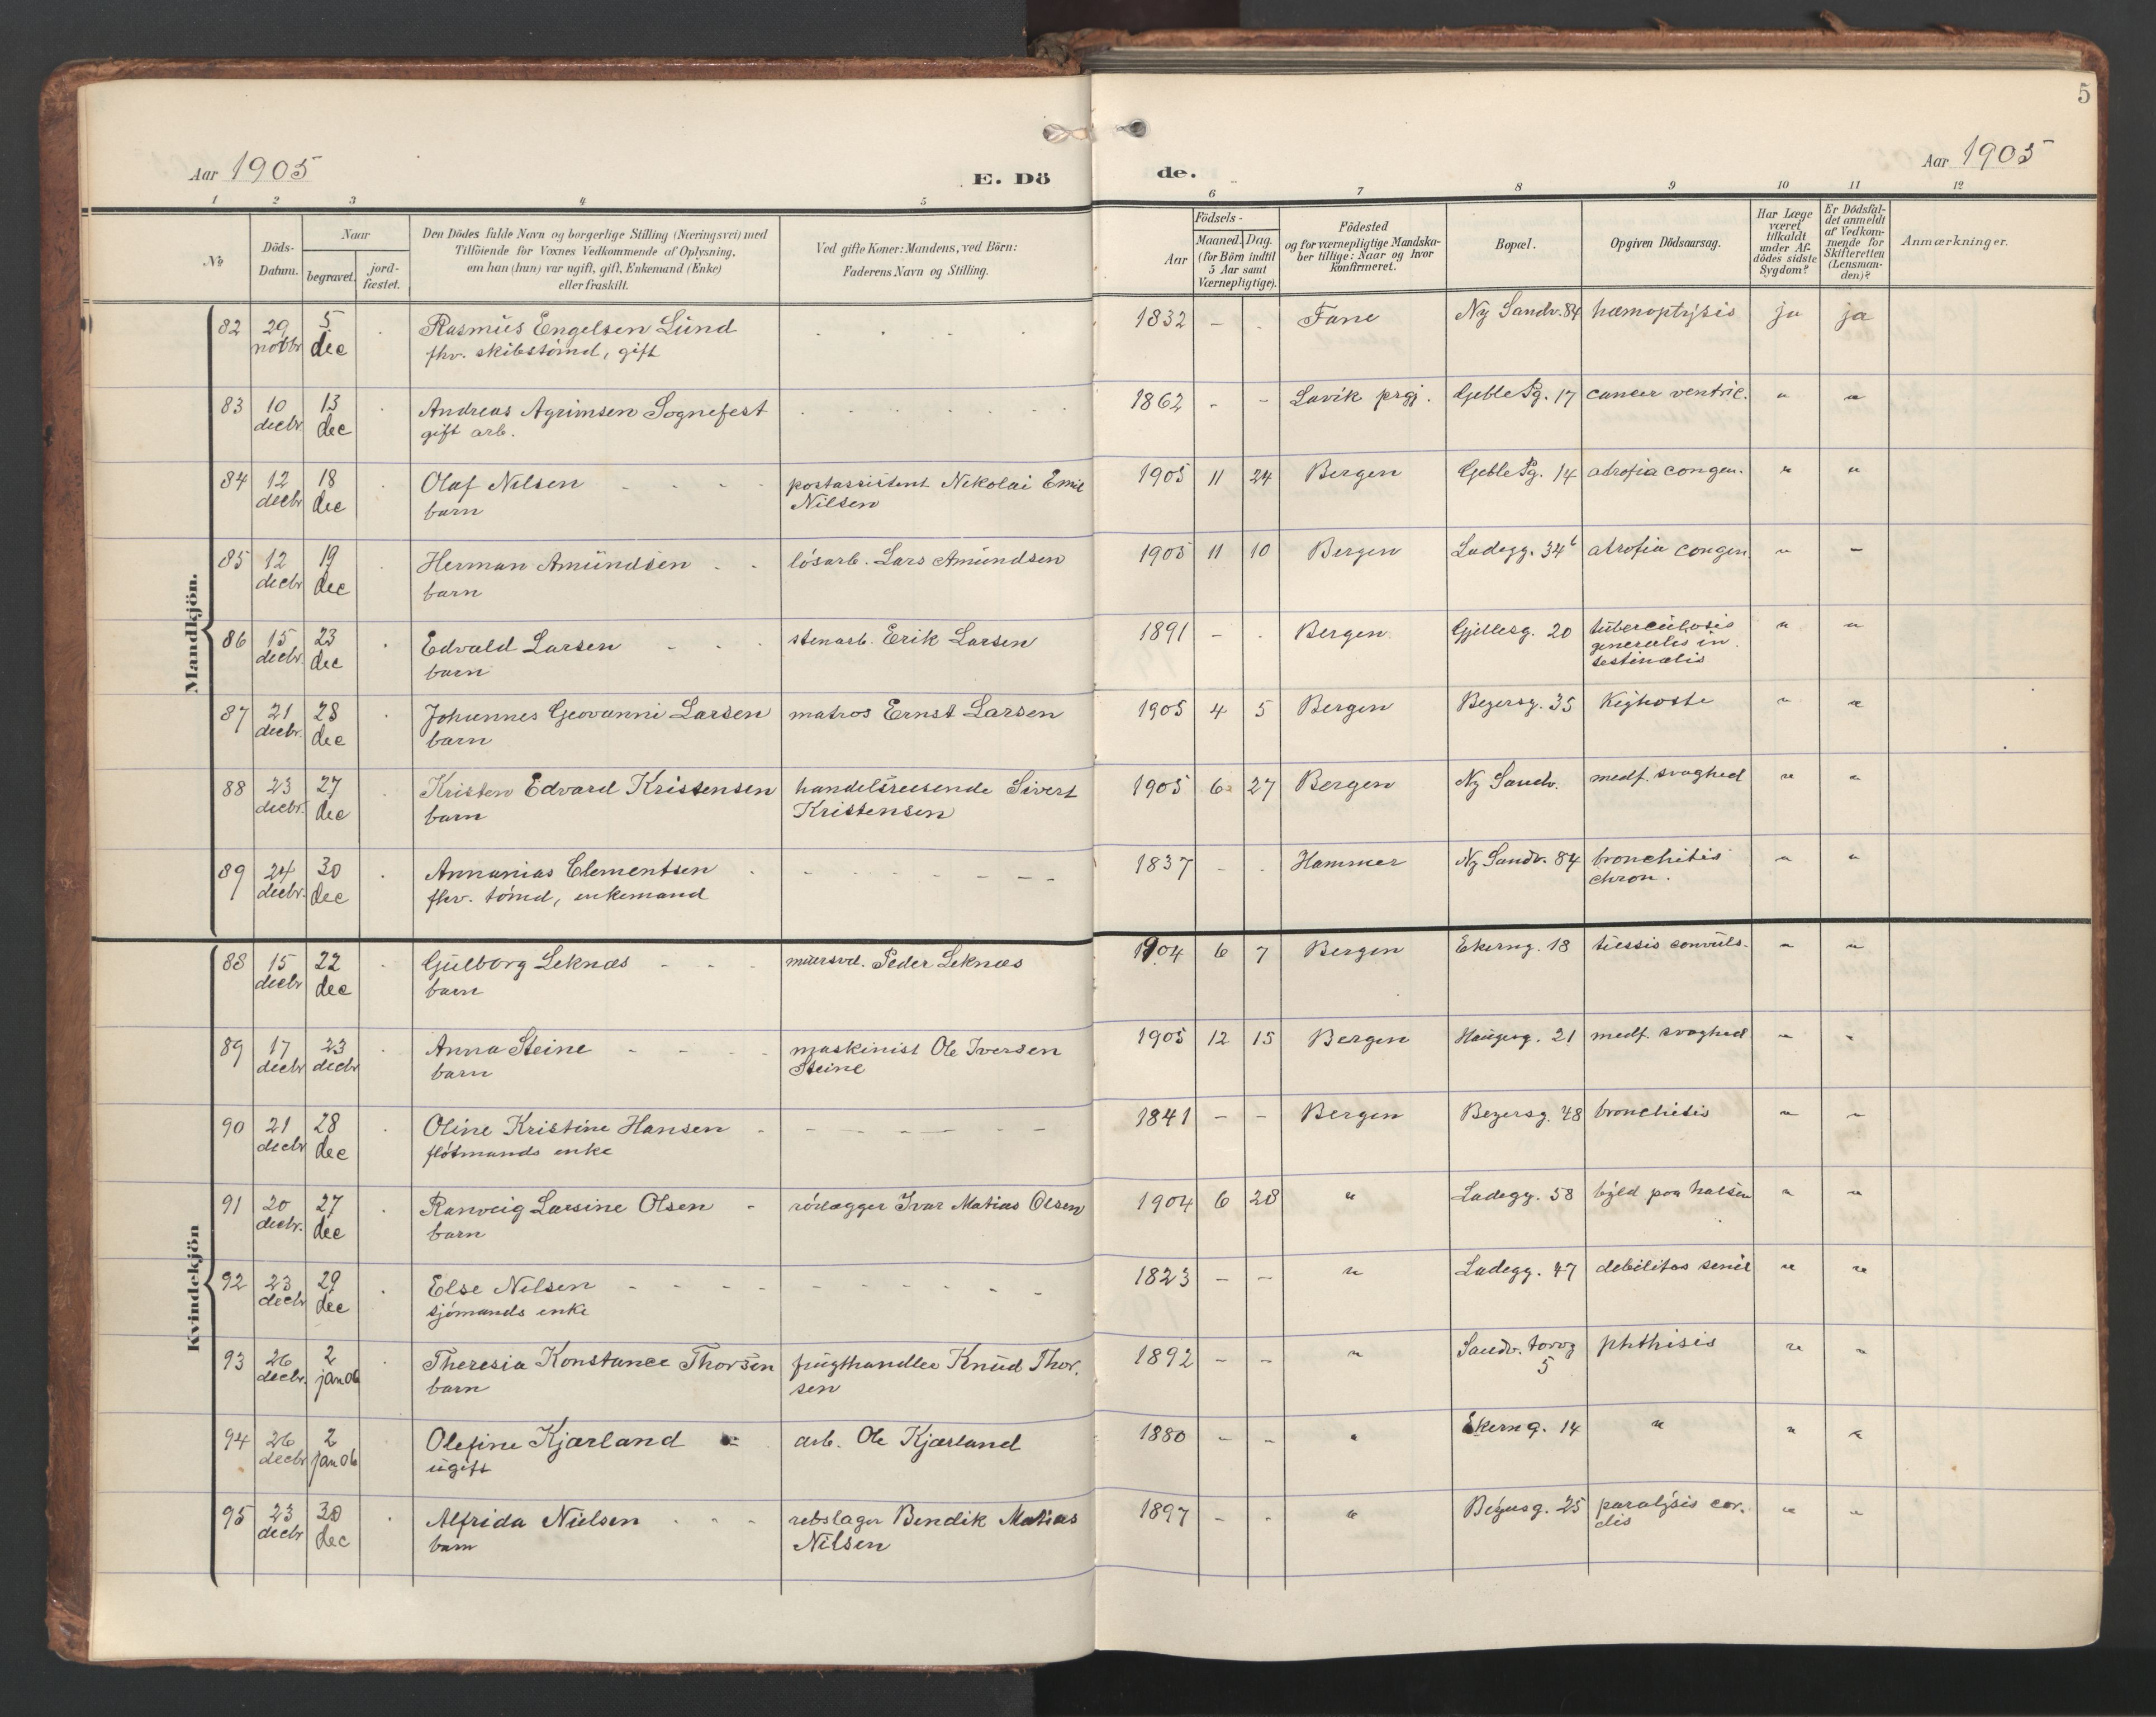 5
Aar 1905
E. Dö
de.
Aar 1905
1 2 3 4 5 6 7 8 9 10 11 12
No
Döds-
Datum.
Naar
begravet.
jord-
fæstet.
Den Dödes fulde Navn og borgerlige Stilling (Næringsvei) med
Tilföiende for Voxnes Vedkommende af Oplysning,
om han (hun) var ugift, gift, Enkemand (Enke)
eller fraskilt.
Ved gifte Koner: Mandens, ved Börn:
Faderens Navn og Stilling.
Födsels-
Aar
Maaned. Dag.
(for Börn indtil
5 Aar samt
Værnepligtige).
Födested
og for værnepligtige Mandska-
ber tillige: Naar og hvor
konfirmeret.
Bopæl.
Opgiven Dödsaarsag.
Har Læge
været
tilkaldt
under Af-
dödes sidste
Sygdom?
Er Dödsfal-
det anmeldt
af Vedkom-
mende for
Skifteretten
(Lensman-
den)?
Anmærkninger.
Mandkjön.
82 29 5 Rasmus Engelsen Lund 1832 - - Fane Ny Sandv. 84 hæmoptysis ja ja
novbr dec fhv. skibstömd, gift
83 10 13 Andreas Agrimsen Sognefest 1862 - - Lavik prgj. Geble Pg. 17 cancer ventric. " "
decbr dec gift arb.
84 12 18 Olaf Nilsen postassistent Nikolai Emil 1905 11 24 Bergen Geble Pg. 14 atrofia congen. " "
decbr dec barn Nilsen
85 12 19 Herman Amundsen lösarb. Lars Amundsen 1905 11 10 Bergen Ladegg. 34b atrofia congen " "
decbr dec barn
86 15 23 Edvald Larsen stenarb. Erik Larsen 1891 - - Bergen Gjellesg. 20 tuberculosis " "
decbr. dec barn generalis in
testinalis
87 21 28 Johannes Geovanni Larsen matros Ernst Larsen 1905 4 5 Bergen Beyersg. 35 Kighoste " "
decbr. dec barn
88 23 27 Kristen Edvard Kristensen handelsreisende Sivert 1905 6 27 Bergen Ny Sandv. medf. svaghed " "
decbr. dec barn Kristensen
89 24 30 Annanias Clementsen 1837 - - Hammer Ny Sandv. 84 bronchitis " "
decbr. dec fhv. tömd, enkemand chron.
Kvindekjön
88 15 22 Gulborg Leknæs Peder Leknæs 1904 6 7 Bergen Ekerng. 18 tussis convuls. " "
decbr dec barn
89 17 23 Anna Steine maskinist Ole Iversen 1905 12 15 Bergen Haugesg. 21 medf. svaghed " "
decbr decbr barn Steine
90 21 28 Oline Kristine Hansen 1841 - - Bergen Beyersg. 48 bronchitis " "
decbr dec flötmands enke
91 20 27 Ranveig Larsine Olsen rörlægger Ivar Matias Olsen 1904 6 28 " Ladegg. 58 byld paa halsen " "
decbr. dec barn
92 23 29 Else Nilsen 1823 - - " Ladegg. 47 debilitas senil " "
decbr dec sjömands enke
93 26 2 Theresia Konstance Thorsen frugthandler Knud Thor. 1892 - - " Sandv. torvg phthisis " "
decbr. jan 06 barn sen 5
94 26 2 Olefine Kjærland arb. Ole Kjærland 1880 - - " Ekerng. 14 " " "
decbr jan 06 ugift
95 23 30 Alfrida Nielsen rebslager Bendik Matias 1897 - - " Beyersg. 25 paralysis cor. " "
decbr dec barn Nilsen dis